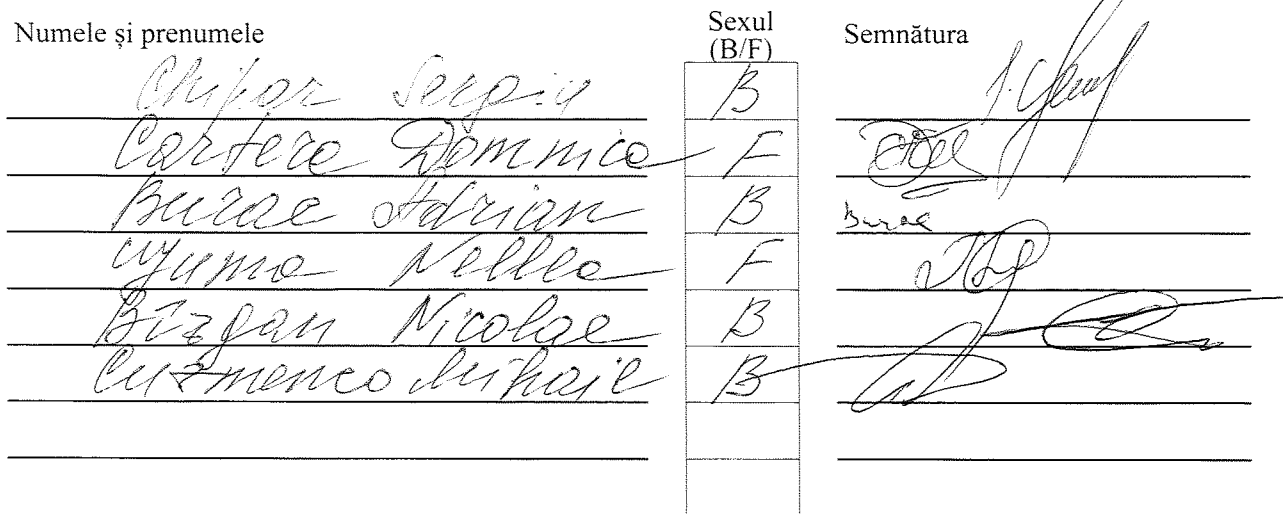 Numele și prenumele Sexul (B/F) Semnătura
Chipar Sergiu B
Cartera Domnica F
Burac Adrian B Burac
Nellea F
Bîzgan Nicolae B
Cuzmenco Mihail B